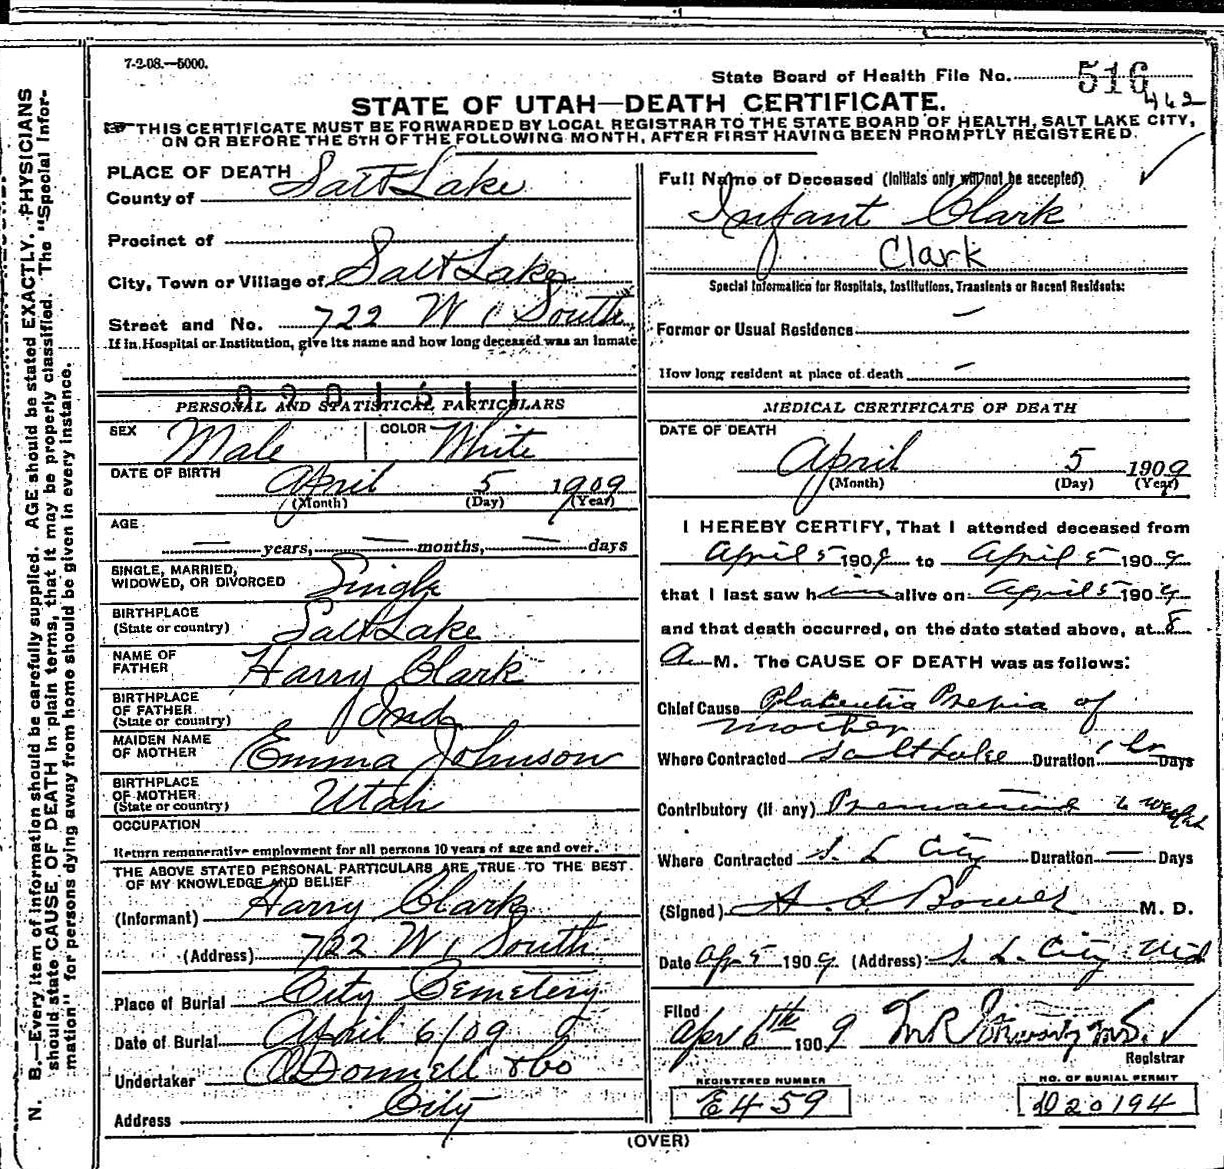 7-2-08.—5000.
State Board of Health File No. 516
462
STATE OF UTAH—DEATH CERTIFICATE.
THIS CERTIFICATE MUST BE FORWARDED BY LOCAL REGISTRAR TO THE STATE BOARD OF HEALTH, SALT LAKE CITY,
ON OR BEFORE THE 5TH OF THE FOLLOWING MONTH, AFTER FIRST HAVING BEEN PROMPTLY REGISTERED.
N. B.—Every item of information should be carefully supplied. AGE should be stated EXACTLY. PHYSICIANS
should state CAUSE OF DEATH in plain terms, that it may be properly classified. The "Special Infor-
mation" for persons dying away from home should be given in every instance.
PLACE OF DEATH
County of Salt Lake
Precinct of
City, Town or Village of Salt Lake
Street and No. 722 W 1 South
If in Hospital or Institution, give its name and how long deceased was an inmate
PERSONAL AND STATISTICAL PARTICULARS
SEX Male COLOR White
DATE OF BIRTH April 5 1909
(Month) (Day) (Year)
AGE
— years, — months, — days
SINGLE, MARRIED,
WIDOWED, OR DIVORCED Single
BIRTHPLACE
(State or country) Salt Lake
NAME OF
FATHER Harry Clark
BIRTHPLACE
OF FATHER
(State or country) Ind
MAIDEN NAME
OF MOTHER Emma Johnson
BIRTHPLACE
OF MOTHER
(State or country) Utah
OCCUPATION
Return remunerative employment for all persons 10 years of age and over.
THE ABOVE STATED PERSONAL PARTICULARS ARE TRUE TO THE BEST
OF MY KNOWLEDGE AND BELIEF
(Informant) Harry Clark
(Address) 722 W 1 South
Place of Burial City Cemetery
Date of Burial April 6/09
Undertaker O'Donnell & Co
Address City
Full Name of Deceased (Initials only will not be accepted)
Infant Clark
Clark
Special Information for Hospitals, Institutions, Transients or Recent Residents:
Former or Usual Residence —
How long resident at place of death —
MEDICAL CERTIFICATE OF DEATH
DATE OF DEATH
April 5 1909
(Month) (Day) (Year)
I HEREBY CERTIFY, That I attended deceased from
April 5 1909 to April 5 1909
that I last saw him alive on April 5 1909
and that death occurred, on the date stated above, at 8
A M. The CAUSE OF DEATH was as follows:
Chief Cause Plakentia Prefia of
mother
Where Contracted Salt Lake Duration 1 hr Days
Contributory (if any) 6 weeks
Where Contracted S. L City Duration — Days
(Signed) H. S. Bower M. D.
Date Apr 5 1909 (Address) S. L. City
Filed
Apr 6th 1909
Registrar
REGISTERED NUMBER
E459
NO. OF BURIAL PERMIT
D20194
(OVER)